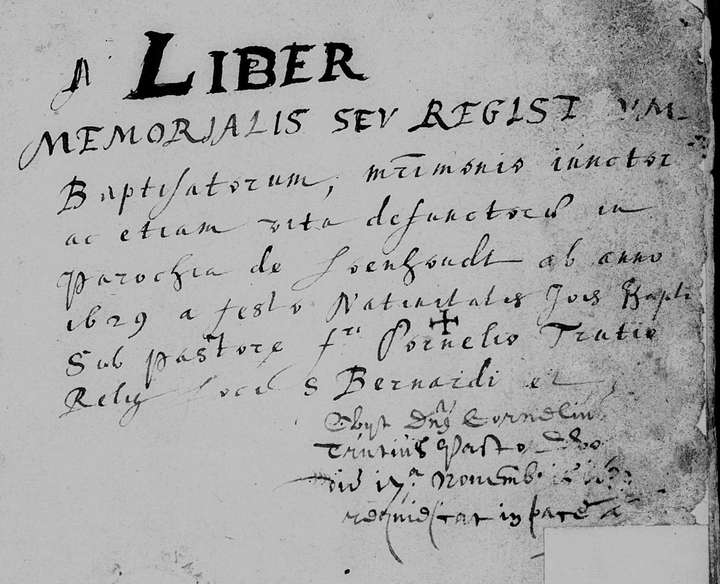 A LIBER
MEMORIALIS SEV REGIST UM
Baptisatorum, mrimonio iunctor
ac etiam vita defunctorũ in
Parochia de Loenhoudt ab anno
1629 a festo Natiuitatis Jois Bapti
Sub pastore fri Cornelio Trutio
Relig loci S Bernardi et
Obyt Dns Corneliu
Trutius Pasto
die 17a Novemb
requiescat in pace A